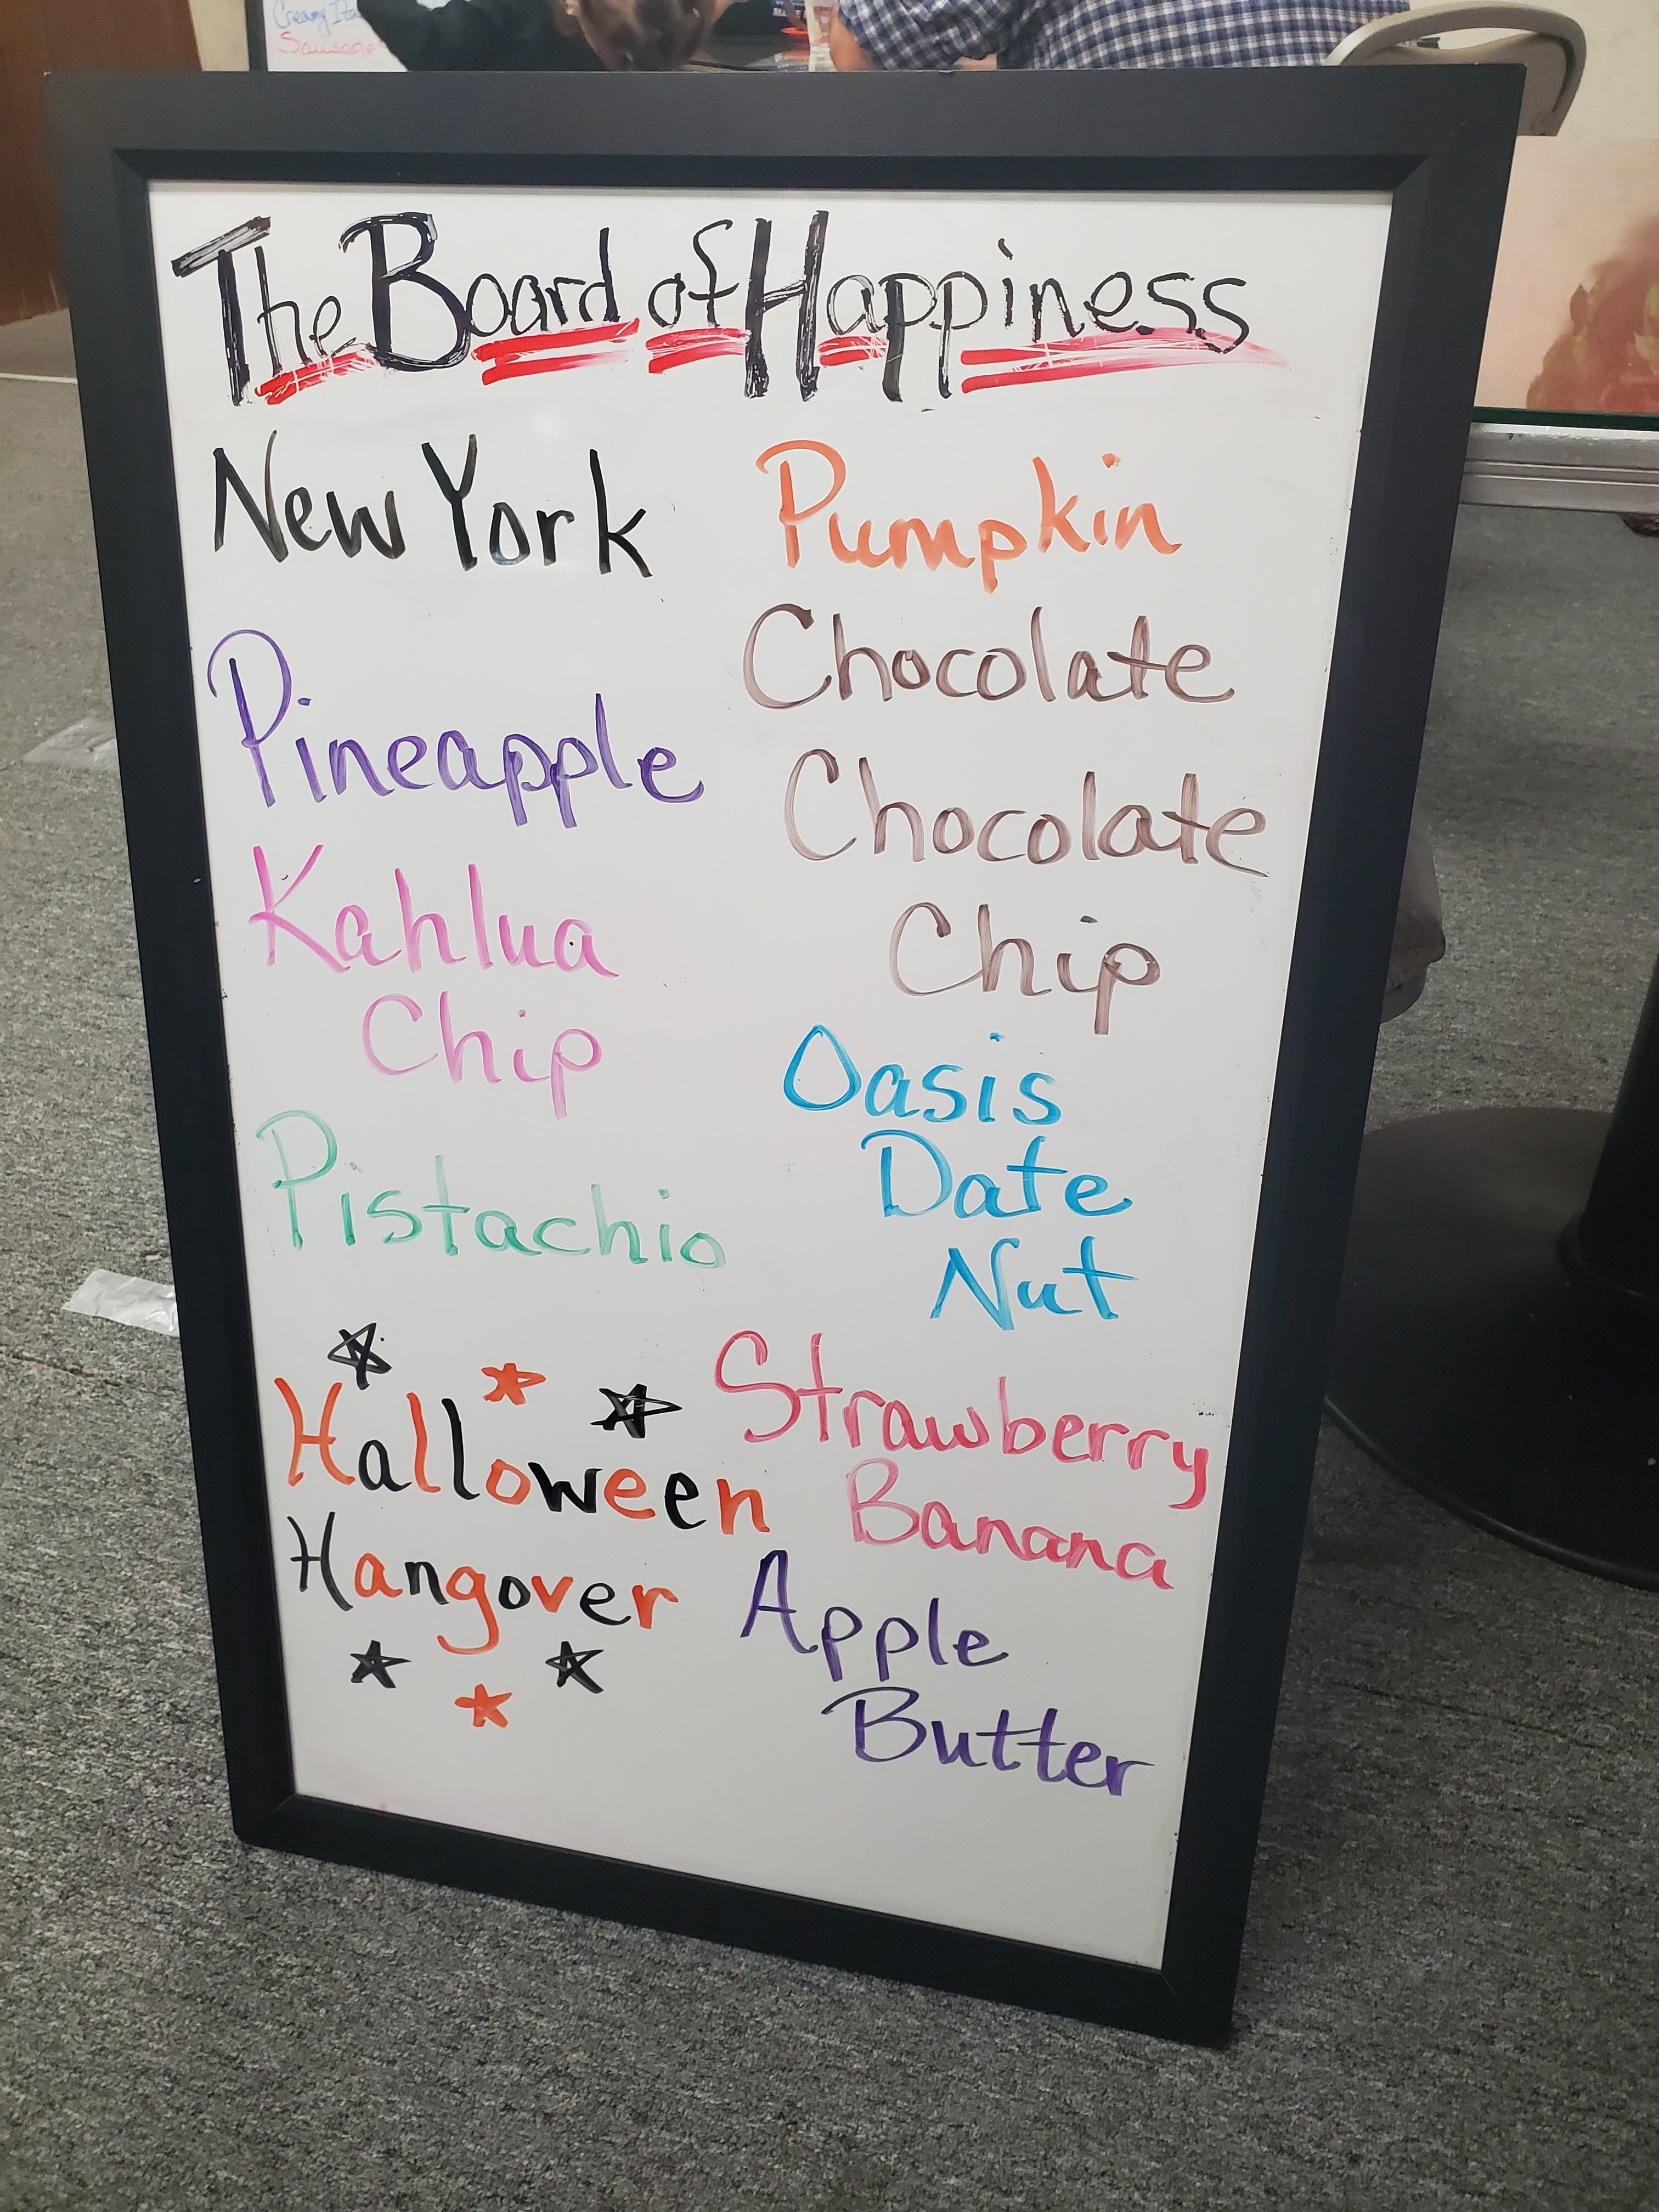 Creamy
Sausage
The Board of Happiness
New York
Pineapple
Kahlua
Chip
Pistachio
Halloween
Hangover
Pumpkin
Chocolate
Chocolate
Chip
Oasis
Date
Nut
Strawberry
Banana
Apple
Butter